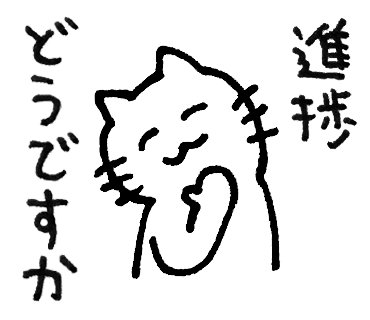 進捗
どうですか